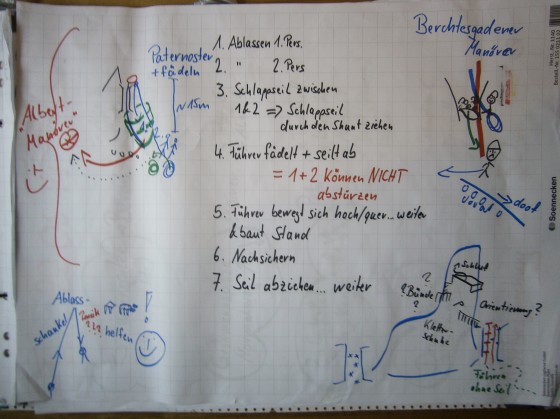 "Albert-
Manöver"
:-)
Paternoster
+ fädeln
~15m
1. Ablassen 1. Pers.
2. " 2. Pers
3. Schlappseil zwischen
1&2 => Schlappseil
durch den Shunt ziehen
4. Führer fädelt + seilt ab
= 1+2 können NICHT
abstürzen
5. Führer bewegt sich hoch/quer... weiter
& baut Stand
6. Nachsichern
7. Seil abziehen... weiter
Berchtesgadener
Manöver
doof
Soennecken
Ablass-
schaukel
Panik
?!?
helfen
!
Schlüssel
?
?Bünde?
Kletter-
schuhe
Orientierung?
Führen
ohne Seil